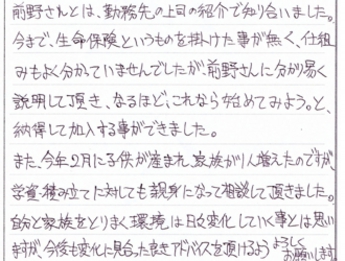 前野さんとは、勤務先の上司の紹介で知り合いました。
今まで、生命保険というものを掛けた事が無く、仕組
みもよく分かっていませんでしたが、前野さんに分かり易く
説明して頂き、なるほど、これなら始めてみよう。と、
納得して加入する事ができました。
また、今年2月に子供が産まれ、家族が1人増えたのですが、
学資積み立てに対しても親身になって相談して頂きました。
自分と家族をとりまく環境は日々変化していく事とは思い
ますが、今後も変化に見合った良きアドバイスを頂けるよう よろしく
お願いします